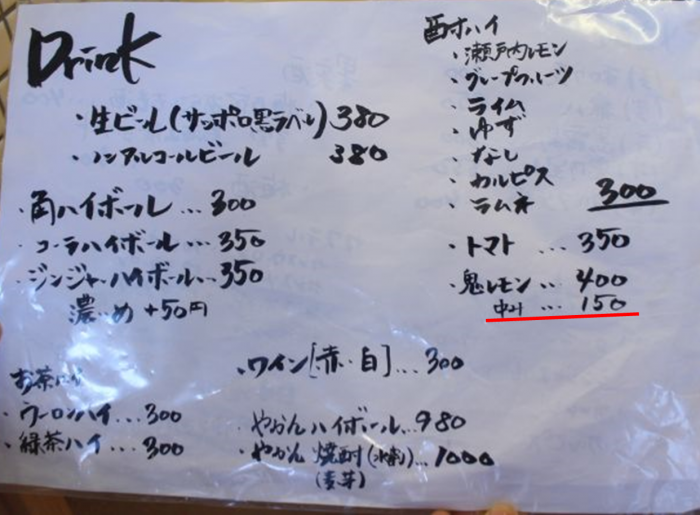 Drink
・生ビール(サッポロ黒ラベル)380
・ノンアルコールビール 380
・角ハイボール…300
・コーラハイボール…350
・ジンジャーハイボール…350
濃いめ +50円
お茶ハイ
・ウーロンハイ…300
・緑茶ハイ…300
酎ハイ
・瀬戸内レモン
・グレープフルーツ
・ライム
・ゆず
・なし
・カルピス
・ラムネ 300
・トマト…350
・鬼レモン…400
中み…150
・ワイン[赤・白]…300
・やかんハイボール…980
・やかん 焼酎(水割り)…1000
(麦、芋)